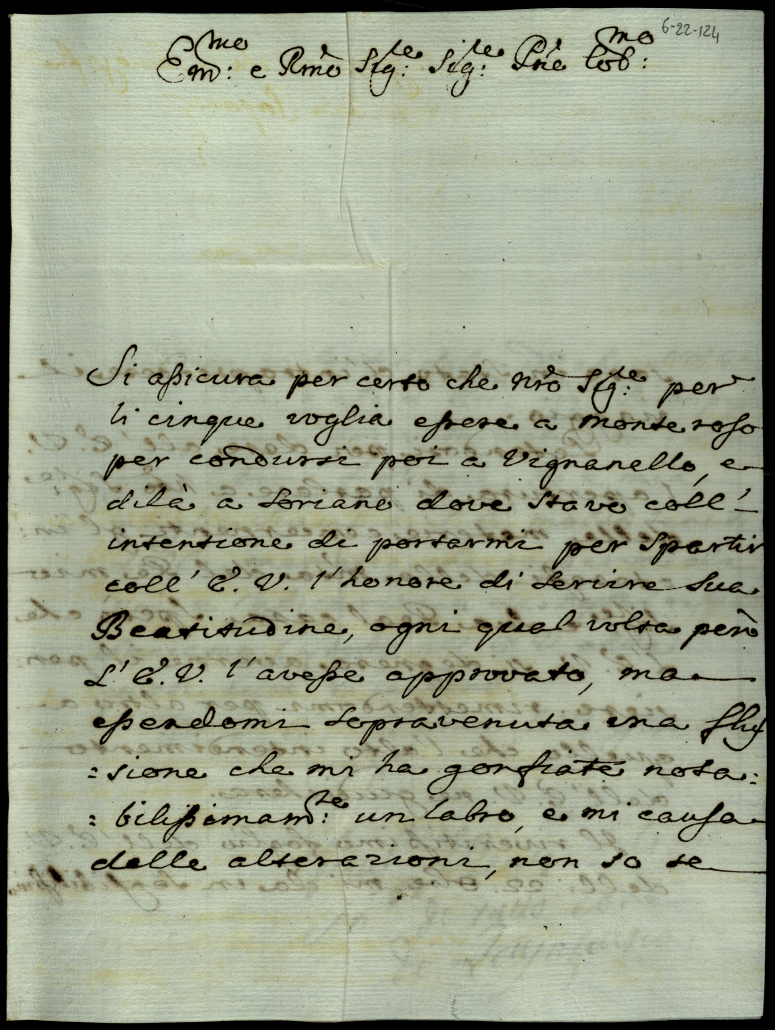 6-22-124
Em:mo e Rmo Sig:re Sig:re Pne Col:mo
Si assicura per certo che nro Sig:re per
li cinque voglia essere a Monte roso
per condursi poi a Vignanello, e
di là a Soriano dove stavo coll'
intentione di portarmi per spartir
coll' E. V. l'honore di servire Sua
Beatitudine, ogni qual volta però
L' E. V. l'avesse approvato, ma
essendomi sopravenuta una flus
:sione che mi ha gonfiate nota:
: bilissimam:te un labro, e mi causa
delle alterazioni, non so se